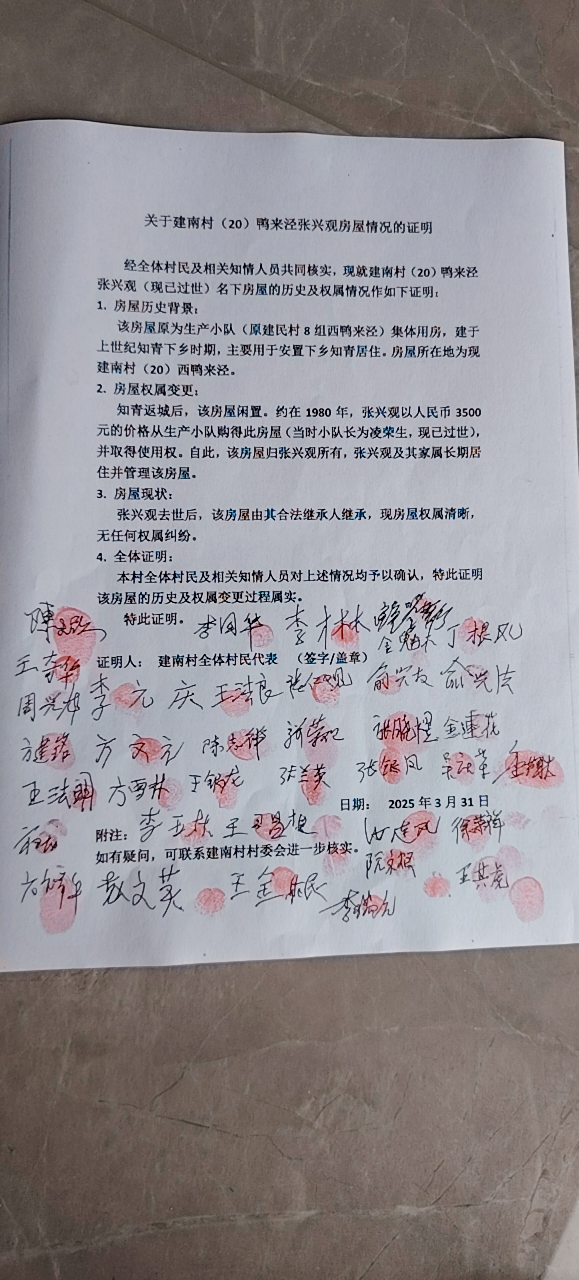 关于建南村（20）鸭来泾张兴观房屋情况的证明
经全体村民及相关知情人员共同核实，现就建南村（20）鸭来泾
张兴观（现已过世）名下房屋的历史及权属情况作如下证明：
1. 房屋历史背景：
该房屋原为生产小队（原建民村 8 组西鸭来泾）集体用房，建于
上世纪知青下乡时期，主要用于安置下乡知青居住。房屋所在地为现
建南村（20）西鸭来泾。
2. 房屋权属变更：
知青返城后，该房屋闲置。约在 1980 年，张兴观以人民币 3500
元的价格从生产小队购得此房屋（当时小队长为凌荣生，现已过世），
并取得使用权。自此，该房屋归张兴观所有，张兴观及其家属长期居
住并管理该房屋。
3. 房屋现状：
张兴观去世后，该房屋由其合法继承人继承，现房屋权属清晰，
无任何权属纠纷。
4. 全体证明：
本村全体村民及相关知情人员对上述情况均予以确认，特此证明
该房屋的历史及权属变更过程属实。
特此证明。 李国华 李才林
丁根凤
证明人： 建南村全体村民代表 （签字/盖章）
李元庆 王法良 俞兴友 俞兴法
方文元 陈志祥 张晓煜 金连花
王法明 方雪林 王银龙 张兰英 张银凤
日期： 2025 年 3 月 31 日
李玉林 徐荣祥
附注：
如有疑问，可联系建南村村委会进一步核实。
王其虎
敖文英 王金民 李瑞元